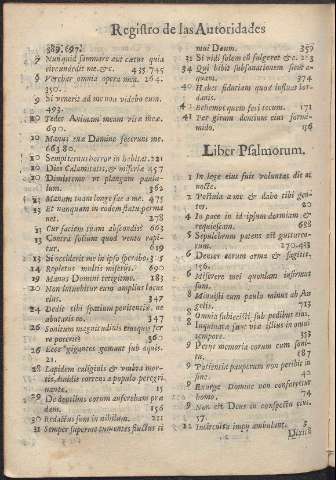 Registro de las Autoridades
389. 697.
7 Nunquid summare aut cætus quia
circundedit me. &c. 435 745
9 Verebar omnia opera mea. 264.
350.
9 Si venerit ad me non videbo eum.
493.
10 Tedet Animam meam vitæ meæ.
690.
10 Manus tuæ Domine fecerunt me.
663.80.
10 Sempiternus horror inhabitat. 221
10 Dies Calamitatis, & miseriæ 357
10 Dimitte me vt plangam paulu-
lum. 362
13 Manum tuam longe fac a me. 475
13 Et nunquam in eodem statu perma
net. 278
13 Cur faciem tuam abscondis 663
13 Contra folium quod vento rapi-
tur. 619
13 Si occiderit me in ipso sperabo. 315
14 Repletus multis miserijs. 690
19 Manus Domini tetigit me. 183
20 Non intuebitur eum amplius locus
eius. 347
24 Dedit tibi spatium penitentiæ. ne
abutatis eo. 347
26 Sonitum magnitudinis eius quis fer
re poterit 360
26 Ecce gigantes gemunt sub aquis.
21.
28 Lapidem caliginis & vmbra mor-
tis, diuidit torrens a populo peregri
nante. 15
29 De dentibus eorum auferebam præ
dam. 156
30 Redactus sum in nihilum. 221
31 Semper super me tumentes fluctus ti
mui Deum. 359
31 Si vidi solem cũ fulgeret &c. 223
34 Qui bibit subsanationem sicut a-
quam. 374
40 Habet fiduciam quod influat Ior-
danis.
40 Behemot quem feci tecum. 171
41 Per girum dentium eius formi-
nido. 96
Liber Psalmorum.
1 In lege eius fuit voluntas die ac
nocte.
2 Postula a me & dabo tibi gen-
tes. 20
4 In pace in id ipsum dormiam &
requiescam. 688
5 Sepulchrum patens est guttur eo-
rum. 270.433
6 Deuset eorum arma & sagittæ.
156.
6 Miserere mei quoniam infirmus
sum.
8 Minuisti eum paulo minus ab An
gelis. 713
8 Omnia subiecisti sub pedibus eius.
8 Inquinatæ sunt viæ illius in omni
tempore. 353
9 Perijt memoria eorum cum soni-
tu. 187
9 Patientia pauperum non peribit in
finem. 40
9 Exurge Domine non confortetur
homo. 74
9 Non est Deus in conspectu eius.
57
11 Incircuitu impij ambulant. 5